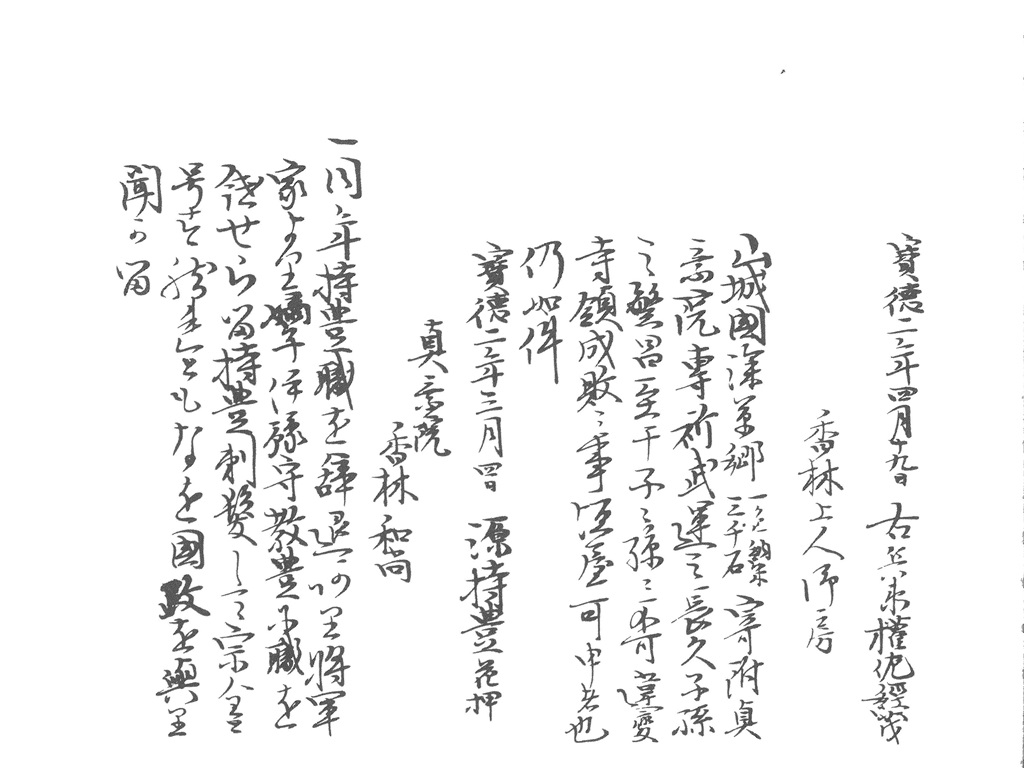 寳徳二年四月十九日 右兵衛権佐経茂
香林上人御房
山城國深草郷 三千石 寄附真
言院専祈武運之長久子孫
之繁昌至于子々孫々不可違變
寺領成敗之事垣屋可申者也
仍如件
寳徳二年三月四日 源持豊 花押
真言院
香林和尚
一同年持豊職を辞退 将軍
家より嫡子伊豫守教豊に職を
せらる持豊剃髪して宗全
号す然れともなを國政を與
聞